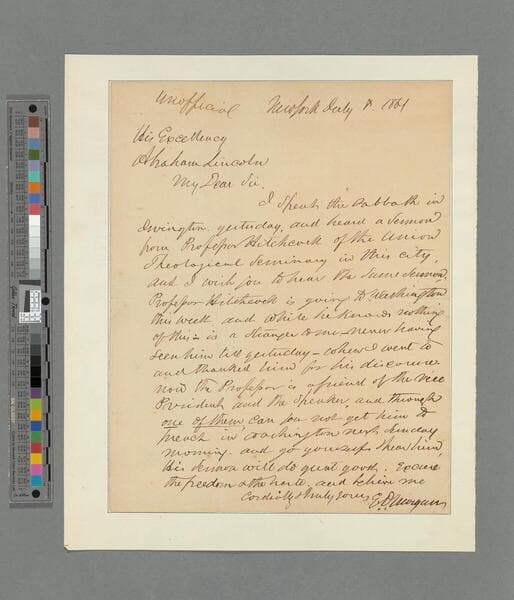 Unofficial New York July 8. 1861
His Excellency
Abraham Lincoln
My Dear Sir.
I spent the Sabbath in
Irvington yesterday, and heard a Sermon
from Professor Hitchcock of the Union
Theological Seminary in this city,
and I wish you to hear the same Sermon.
Professor Hitchcock is going to Washington
this week and while he knows nothing
of this - is a stranger to me - never having
seen him till yesterday - when I went to
and thanked him for his discourse
now the Professor is a friend of the Vice
President and the Speaker, and through
one of them, can you not get him to
preach in Washington next Sunday
morning and go yourself & hear him,
His Sermon will do great good. Excuse
the freedom & the haste, and believe me
Cordially & truly yours E D Morgan